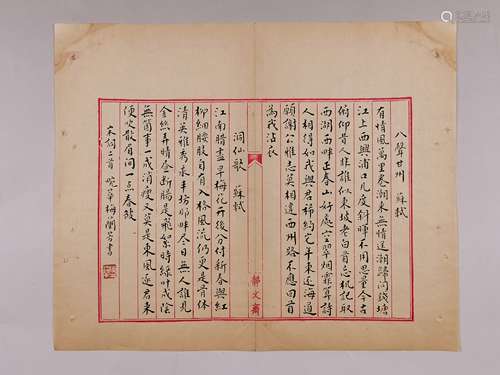 八聲甘州 蘇軾
有情風萬里卷潮來無情送潮歸問錢塘
江上西興浦口几度斜暉不用思量今古
俯仰昔人非誰似東坡老白首忘机記取
西湖西畔正春山好處空翠烟霏算詩
人相得如我與君稀約它年東还海道
願謝公雅志莫相違西州路不應回首
為我沾衣
靜文齋
洞仙歌 蘇軾
江南腊盡早梅花开後分付新春與
柳細腰肢自有入格風流仍更是骨体
清英雅秀永丰坊那畔今日無人誰見
金丝弄晴晝斷腸是飛絮時綠叶成陰
無箇事一成消瘦又莫是東風逐君來
便吹散眉间一点春皱
宋詞二首 畹華梅蘭芳書